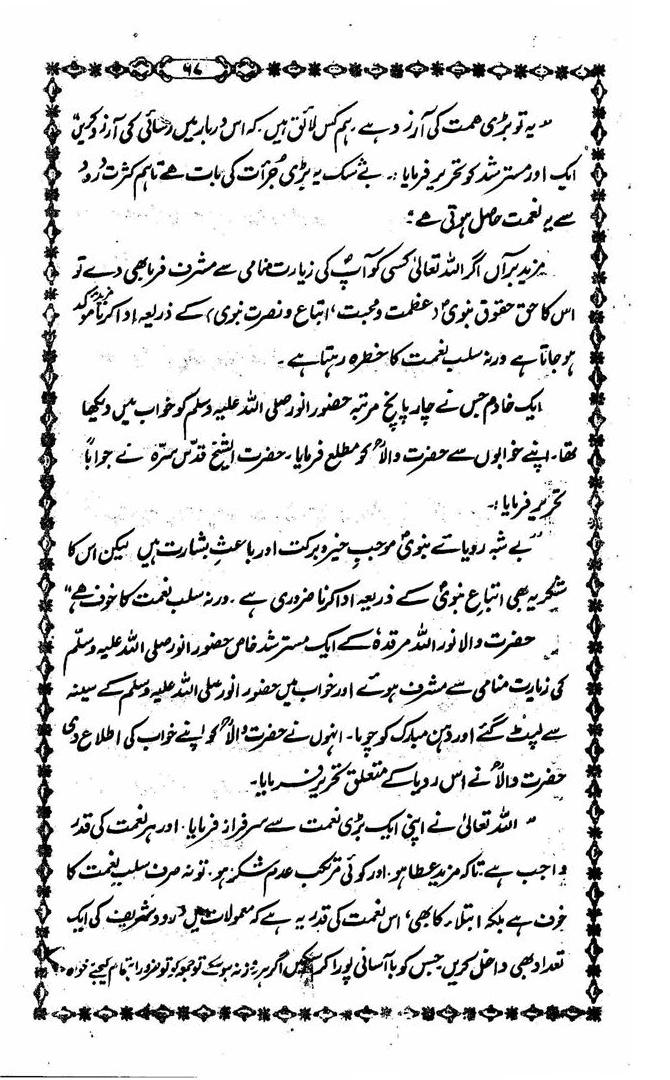 ۶۷
"یہ تو بڑی ہمت کی آرزو ہے، ہم کس لائق ہیں کہ اس دربار میں رسائی کی آرزو کریں"
ایک اور مسترشد کو تحریر فرمایا :۔ بے شک یہ بڑی جرأت کی بات ہے تاہم کثرت درود
سے یہ نعمت حاصل ہوتی ہے :
مزید برآں اگر اللہ تعالیٰ کسی کو آپؐ کی زیارت منامی سے مشرف فرما بھی دے تو
اس کا حق حقوق نبویؐ (عظمت و محبت، اتباع و نصرت نبوی) کے ذریعہ ادا کرنا مزید مؤکد
ہو جاتا ہے ورنہ سلب نعمت کا خطرہ رہتا ہے ۔
ایک خادم جس نے چار پانچ مرتبہ حضور انور صلی اللہ علیہ وسلم کو خواب میں دیکھا
تھا۔ اپنے خوابوں سے حضرت والاؒ کو مطلع فرمایا ۔ حضرت الشیخ قدس سرہ نے جواباً
تحریر فرمایا :۔
"بے شبہ رویائے نبویؐ موجب خیر و برکت اور باعثِ بشارت ہیں لیکن اس کا
شکریہ بھی اتباع نبویؐ کے ذریعہ ادا کرنا ضروری ہے ۔ ورنہ سلب نعمت کا خوف ہے"
حضرت والا نور اللہ مرقدہٗ کے ایک مسترشد خاص حضور انور صلی اللہ علیہ وسلم
کی زیارت منامی سے مشرف ہوئے اور خواب میں حضور انور صلی اللہ علیہ وسلم کے سینہ
سے لپٹ گئے اور دہن مبارک کو چوما۔ انہوں نے حضرت والاؒ کو اپنے خواب کی اطلاع دی
حضرت والاؒ نے اس رویا کے متعلق تحریر فرمایا۔
"اللہ تعالیٰ نے اپنی ایک بڑی نعمت سے سرفراز فرمایا۔ اور ہر نعمت کی قدر
واجب ہے تاکہ مزید عطا ہو۔ اور کوئی مرتکب عدم شکر ہو۔ تو نہ صرف سلب نعمت کا
خوف ہے بلکہ ابتلاء کا بھی، اس نعمت کی قدر یہ ہے کہ معمولات میں درود شریف کی ایک
تعداد بھی داخل کریں جس کو باآسانی پورا کر سکیں اگر ہر روز نہ ہو سکے تو جمعہ کو تو ضرور اہتمام کیجئے خواہ